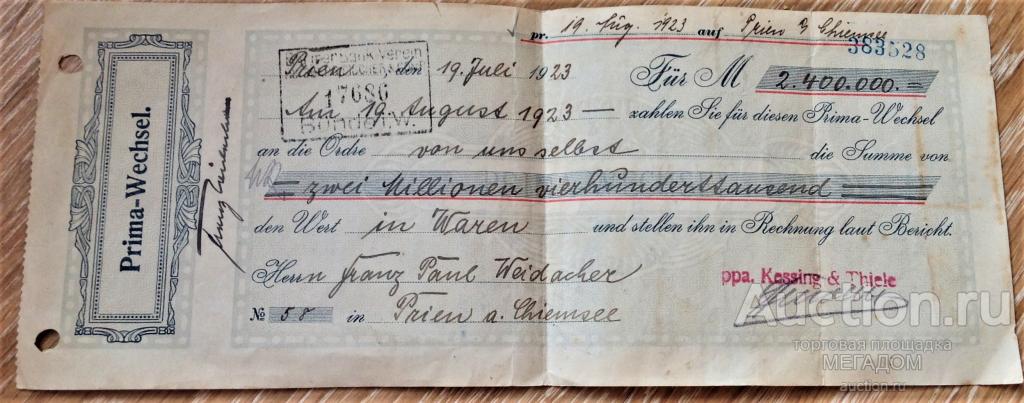 pr. 19. Aug. 1923 auf Prien a/ Chiemsee
383528
Prien den 19. Juli 1923 Für M 2.400.000.=
17686
Am 19. August 1923 — zahlen Sie für diesen Prima-Wechsel
an die Ordre von uns selbst die Summe von
zwei Millionen vierhunderttausend
den Wert in Waren und stellen ihn in Rechnung laut Bericht.
Herrn Franz Paul Weidacher
ppa. Kessing & Thiele
№ 58 in Prien a. Chiemsee
Prima-Wechsel.
Auction.ru
торговая площадка
МЕГАДОМ
auction.ru